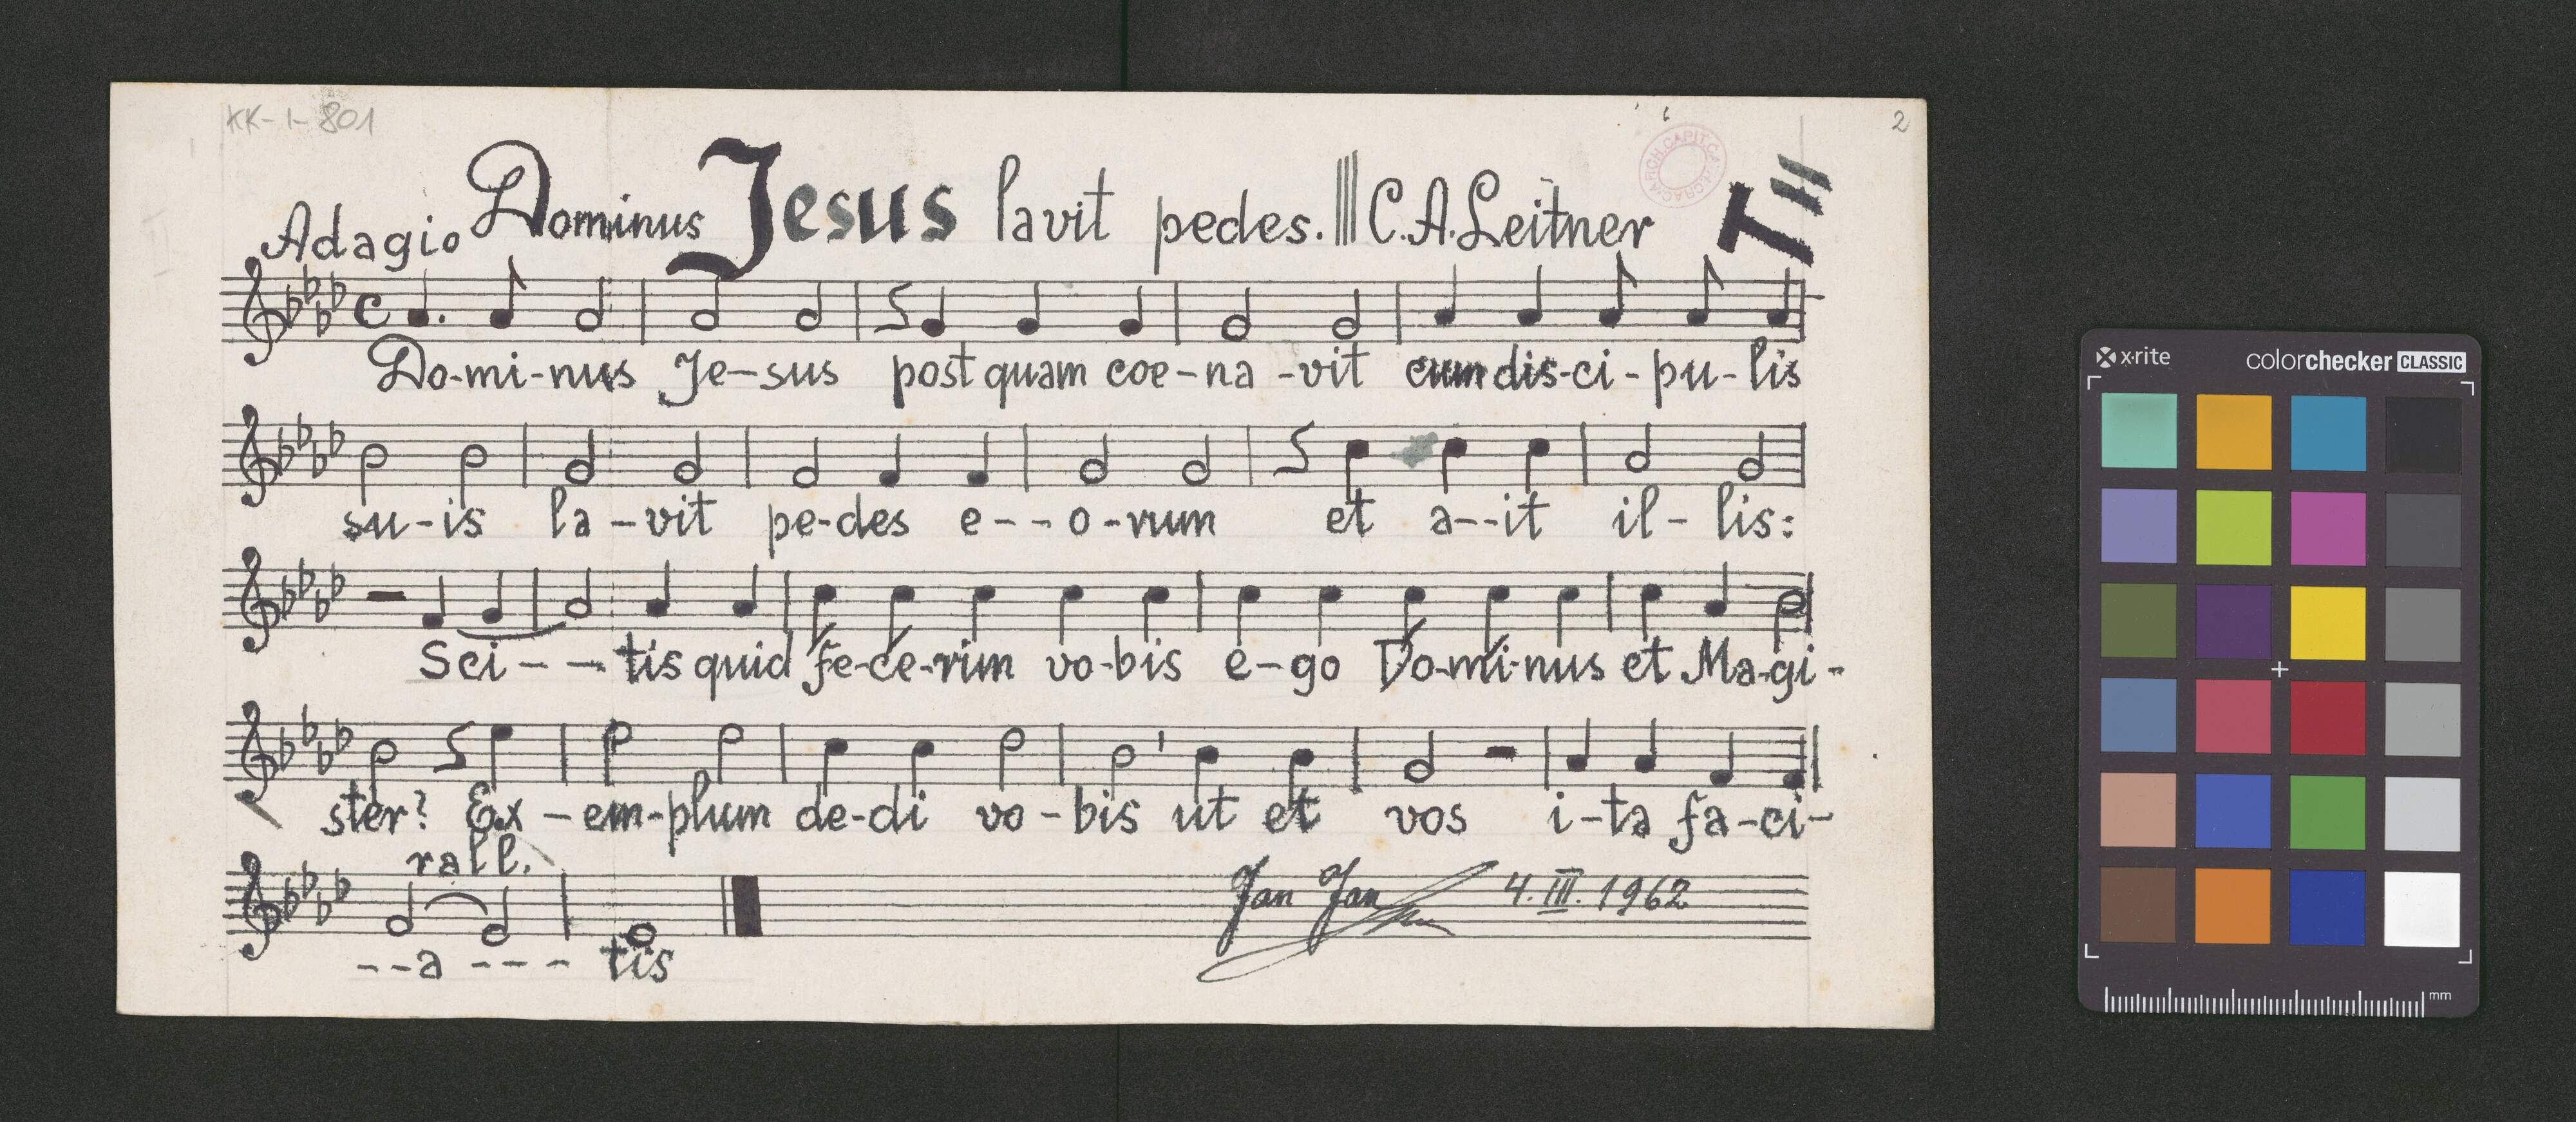 KK-I-801
2
Dominus Jesus lavit pedes. C.A. Leitner T II
Adagio
Do-mi-nus Je-sus post quam coe-na-vit cum dis-ci-pu-lis
su-is la-vit pe-des e--o-rum et a--it il-lis:
Sci---tis quid fe-ce-rim vo-bis e-go Do-mi-nus et Ma-gi-
ster? Ex-em-plum de-di vo-bis ut et vos i-ta fa-ci-
rall.
Jan Jan 4. III. 1962
--a --- tis
x·rite colorchecker CLASSIC
mm